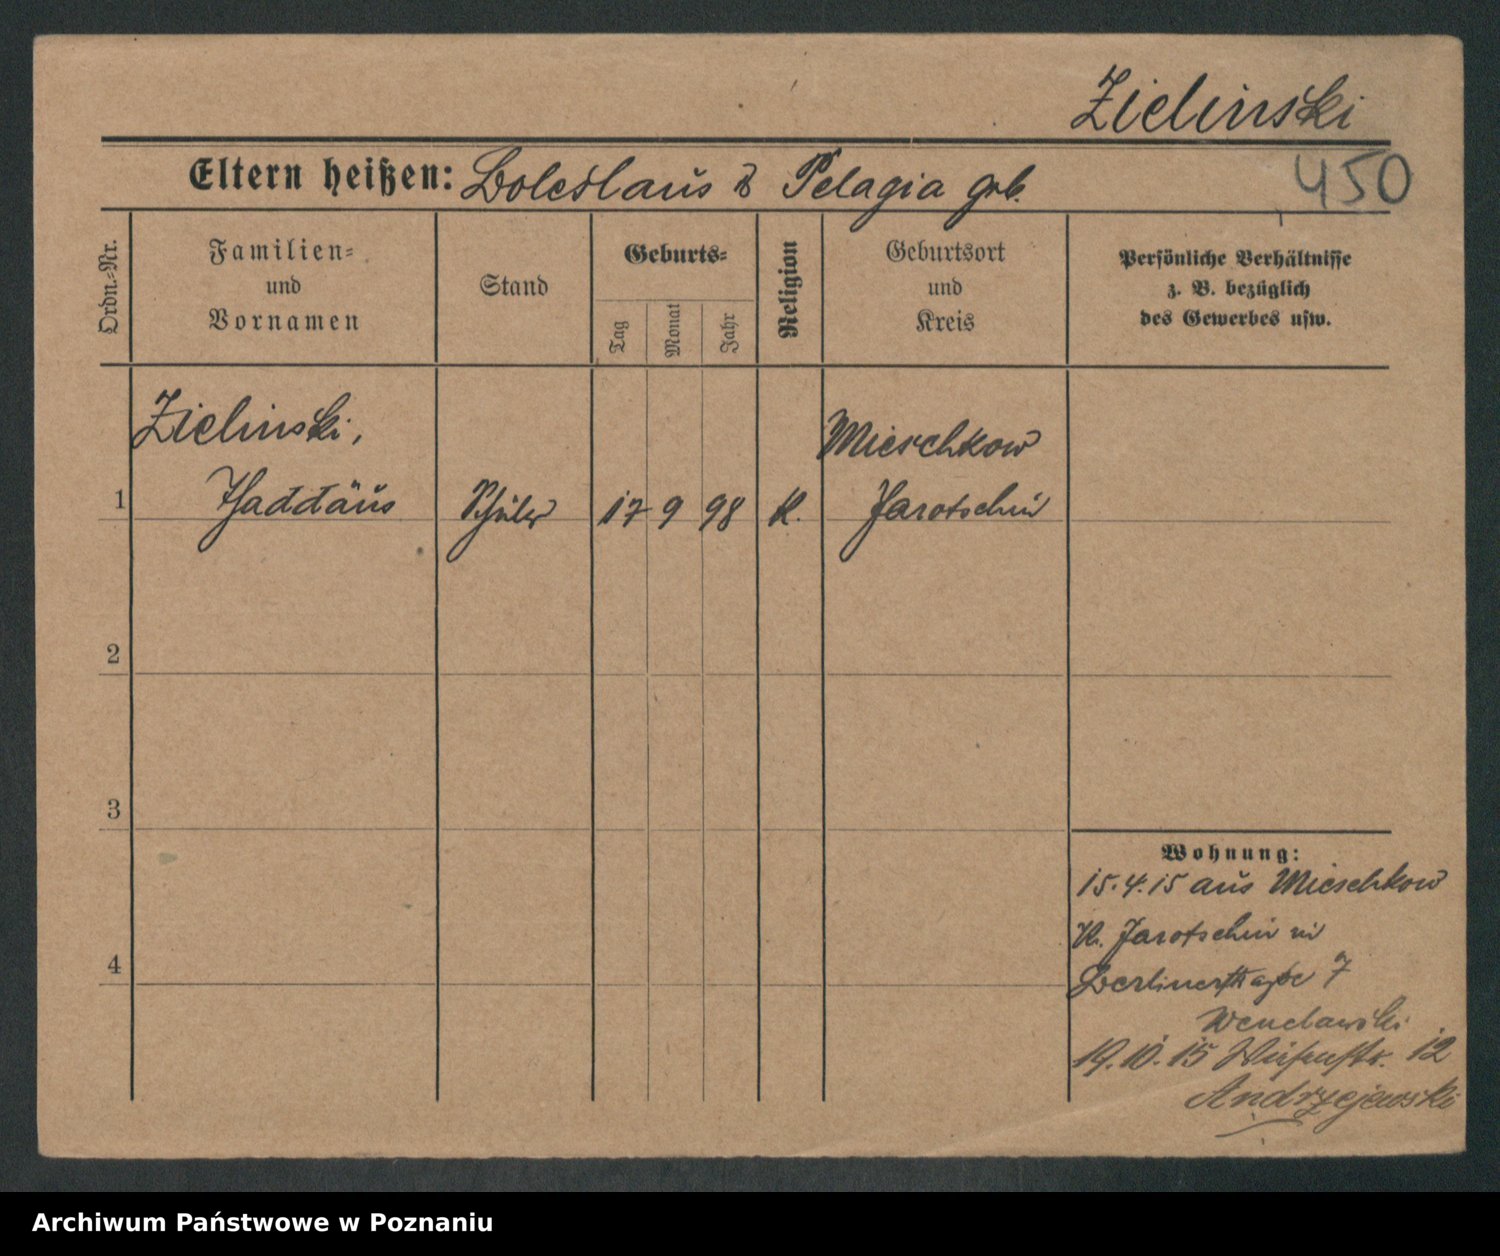 Zielinski
Eltern heißen: Boleslaus & Pelagia geb.
450
Ordn.-Nr.
Familien-
und
Vornamen
Stand
Geburts-
Tag
Monat
Jahr
Religion
Geburtsort
und
Kreis
Persönliche Verhältnisse
z. B. bezüglich
des Gewerbes usw.
Zielinski,
Mieschkow
1 Thaddäus Schüler 17 9 98 K. Jarotschin
2
3
4
Wohnung:
15.4.15 aus Mieschkow
Kr. Jarotschin in
Berlinerstraße 7
Wenclawski
19.10.15 12
Andrzejewski
Archiwum Państwowe w Poznaniu